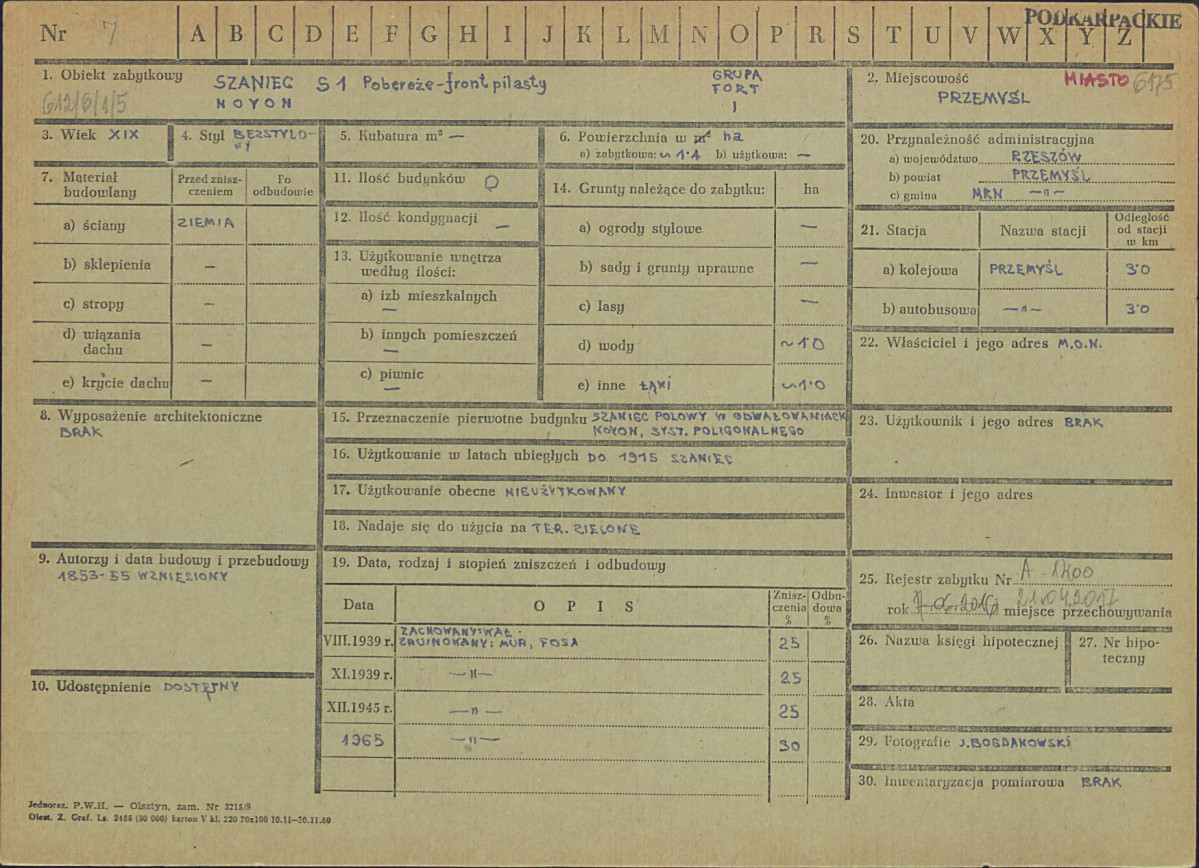 PODKARPACKIE
Nr 7 A B C D E F G H I J K L M N O P R S T U V W X Y Z
1. Obiekt zabytkowy SZANIEC S 1 Pobereże-front pilasty GRUPA
612/6/1/5 NOYON FORT
I
2. Miejscowość MIASTO 6175
PRZEMYŚL
3. Wiek XIX
4. Styl BEZSTYLO-
WY
5. Kubatura m³ —
6. Powierzchnia w m² ha
a) zabytkowa: ~ 1·4 b) użytkowa: —
7. Materiał
budowlany
Przed znisz-
czeniem
Po
odbudowie
a) ściany ZIEMIA
b) sklepienia —
c) stropy —
d) wiązania
dachu —
e) krycie dachu —
8. Wyposażenie architektoniczne
BRAK
9. Autorzy i data budowy i przebudowy
1853-55 WZNIESIONY
10. Udostępnienie DOSTĘPNY
11. Ilość budynków 0
12. Ilość kondygnacji —
13. Użytkowanie wnętrza
według ilości:
a) izb mieszkalnych
—
b) innych pomieszczeń
—
c) piwnic
—
14. Grunty należące do zabytku: ha
a) ogrody stylowe —
b) sady i grunty uprawne —
c) lasy —
d) wody ~1·0
e) inne ŁĄKI ~1·0
15. Przeznaczenie pierwotne budynku SZANIEC POLOWY W OBWAŁOWANIACH
NOYON, SYST. POLIGONALNEGO
16. Użytkowanie w latach ubiegłych DO 1915 SZANIEC
17. Użytkowanie obecne NIEUŻYTKOWANY
18. Nadaje się do użycia na TER. ZIELONE
19. Data, rodzaj i stopień zniszczeń i odbudowy
Data OPIS Znisz-
czenia
%
Odbu-
dowa
%
VIII.1939 r. ZACHOWANY: WAŁ.
ZRUINOWANY: MUR, FOSA 25
XI.1939 r. —"— 25
XII.1945 r. —"— 25
1965 —"— 30
20. Przynależność administracyjna
a) województwo RZESZÓW
b) powiat PRZEMYŚL
c) gmina MRN —"—
21. Stacja Nazwa stacji Odległość
od stacji
w km
a) kolejowa PRZEMYŚL 3·0
b) autobusowa —"— 3·0
22. Właściciel i jego adres M.O.N.
23. Użytkownik i jego adres BRAK
24. Inwestor i jego adres
25. Rejestr zabytku Nr A-1400
rok 21.04.2017 miejsce przechowywania
26. Nazwa księgi hipotecznej
27. Nr hipo-
teczny
28. Akta
29. Fotografie J. BOGDANOWSKI
30. Inwentaryzacja pomiarowa BRAK
Jednoraz. P.W.H. — Olsztyn, zam. Nr 3215/S
Olszt. Z. Graf. Ls. 2486 (30 000) karton V kl. 220 70x100 10.11—30.11.60